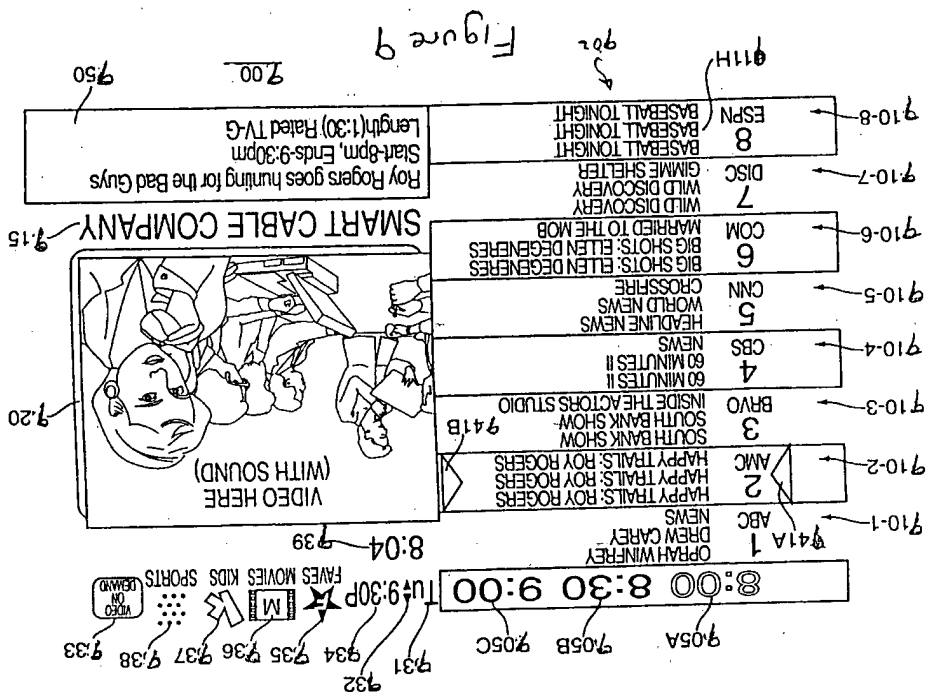 9.05A 9.05B 9.05C 9.31 9.32 9.34 9.35 9.36 9.37 9.38 9.33
8:00 8:30 9:00
Tu 9:30P
FAVES MOVIES KIDS SPORTS
M
VIDEO ON DEMAND
8:04
9.39
910-1
1 ABC
OPRAH WINFREY
DREW CAREY
NEWS
941A
910-2
2 AMC
HAPPY TRAILS: ROY ROGERS
HAPPY TRAILS: ROY ROGERS
HAPPY TRAILS: ROY ROGERS
941B
910-3
3 BRVO
SOUTH BANK SHOW
SOUTH BANK SHOW
INSIDE THE ACTORS STUDIO
910-4
4 CBS
60 MINUTES II
60 MINUTES II
NEWS
910-5
5 CNN
HEADLINE NEWS
WORLD NEWS
CROSSFIRE
910-6
6 COM
BIG SHOTS: ELLEN DEGENERES
BIG SHOTS: ELLEN DEGENERES
MARRIED TO THE MOB
910-7
7 DISC
WILD DISCOVERY
WILD DISCOVERY
GIMME SHELTER
910-8
8 ESPN
BASEBALL TONIGHT
BASEBALL TONIGHT
BASEBALL TONIGHT
911H
902
VIDEO HERE
(WITH SOUND)
9.20
SMART CABLE COMPANY
9.15
Roy Rogers goes hunting for the Bad Guys
Start-8pm, Ends-9:30pm
Length(1:30) Rated TV-G
9.50
9.00
Figure 9